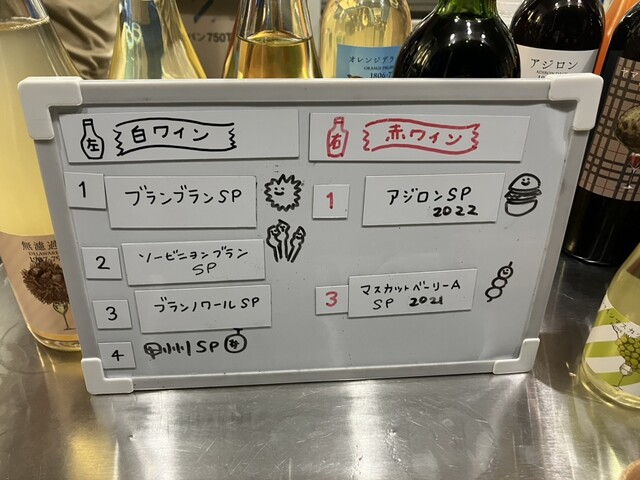 パン750T
オレンジデラ
1806-7
アジロン
無濾過
DELAWARE
左 白ワイン
1 ブランブラン SP
2 ソービニョンブラン
SP
3 ブランノワール SP
4 甲州 SP
右 赤ワイン
1 アジロン SP
2022
3 マスカットベーリーA
SP 2021